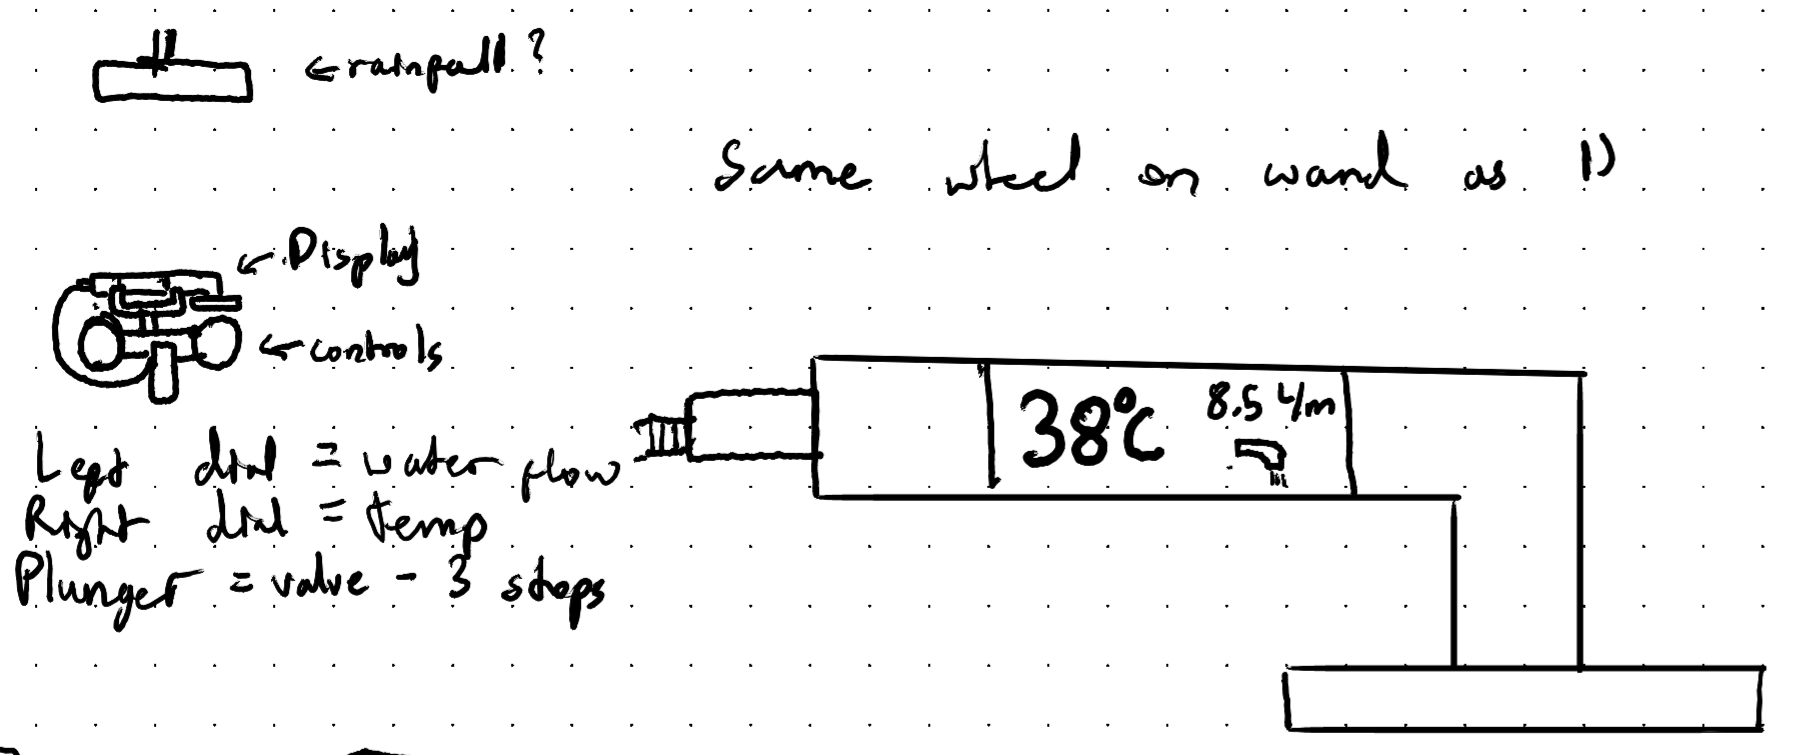 ←rainfall?
Same wheel on wand as 1)
←Display
←controls
38°C 8.5 L/m
Left dial = water flow
Right dial = temp
Plunger = valve - 3 stops